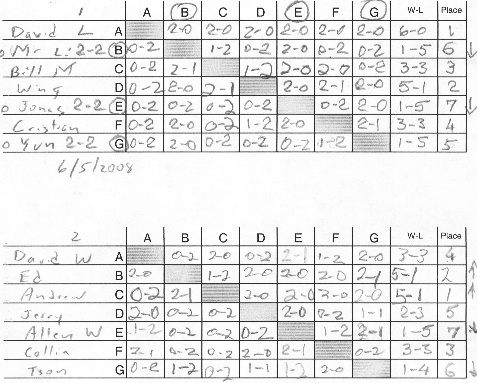 1 A B C D E F G W-L Place
David L A 2-0 2-0 2-0 2-0 2-0 2-0 6-0 1
o Mr L: 2-2 B 0-2 1-2 0-2 2-0 0-2 0-2 1-5 6 ↓
Bill M C 0-2 2-1 1-2 2-0 2-0 0-2 3-3 3
Wing D 0-2 2-0 2-1 2-0 2-1 2-0 5-1 2
o Jones 2-2 E 0-2 0-2 0-2 0-2 0-2 2-0 1-5 7 ↓
Cristian F 0-2 2-0 0-2 1-2 2-0 2-1 3-3 4
o Yun 2-2 G 0-2 2-0 0-2 0-2 0-2 1-2 1-5 5
6/5/2008
2 A B C D E F G W-L Place
David W A 0-2 2-0 0-2 2-1 1-2 2-0 3-3 4
Ed B 2-0 1-2 2-0 2-0 2-0 2-1 5-1 2 ↑
Andrew C 0-2 2-1 2-0 2-0 2-0 2-0 5-1 1 ↑
Jerry D 2-0 0-2 0-2 2-0 0-2 1-1 2-3 5
Allen W E 1-2 0-2 0-2 0-2 1-2 2-1 1-5 7 ↓
Collin F 2-1 0-2 0-2 2-0 2-1 0-2 3-3 3
G 0-2 1-2 0-2 1-1 1-2 2-0 1-4 6 ↓